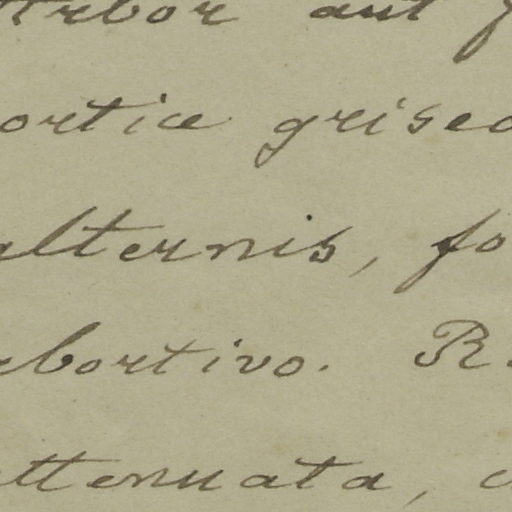 Arbor aut
ortice griseo
alternis, fo
abortivo. R
attenuata,